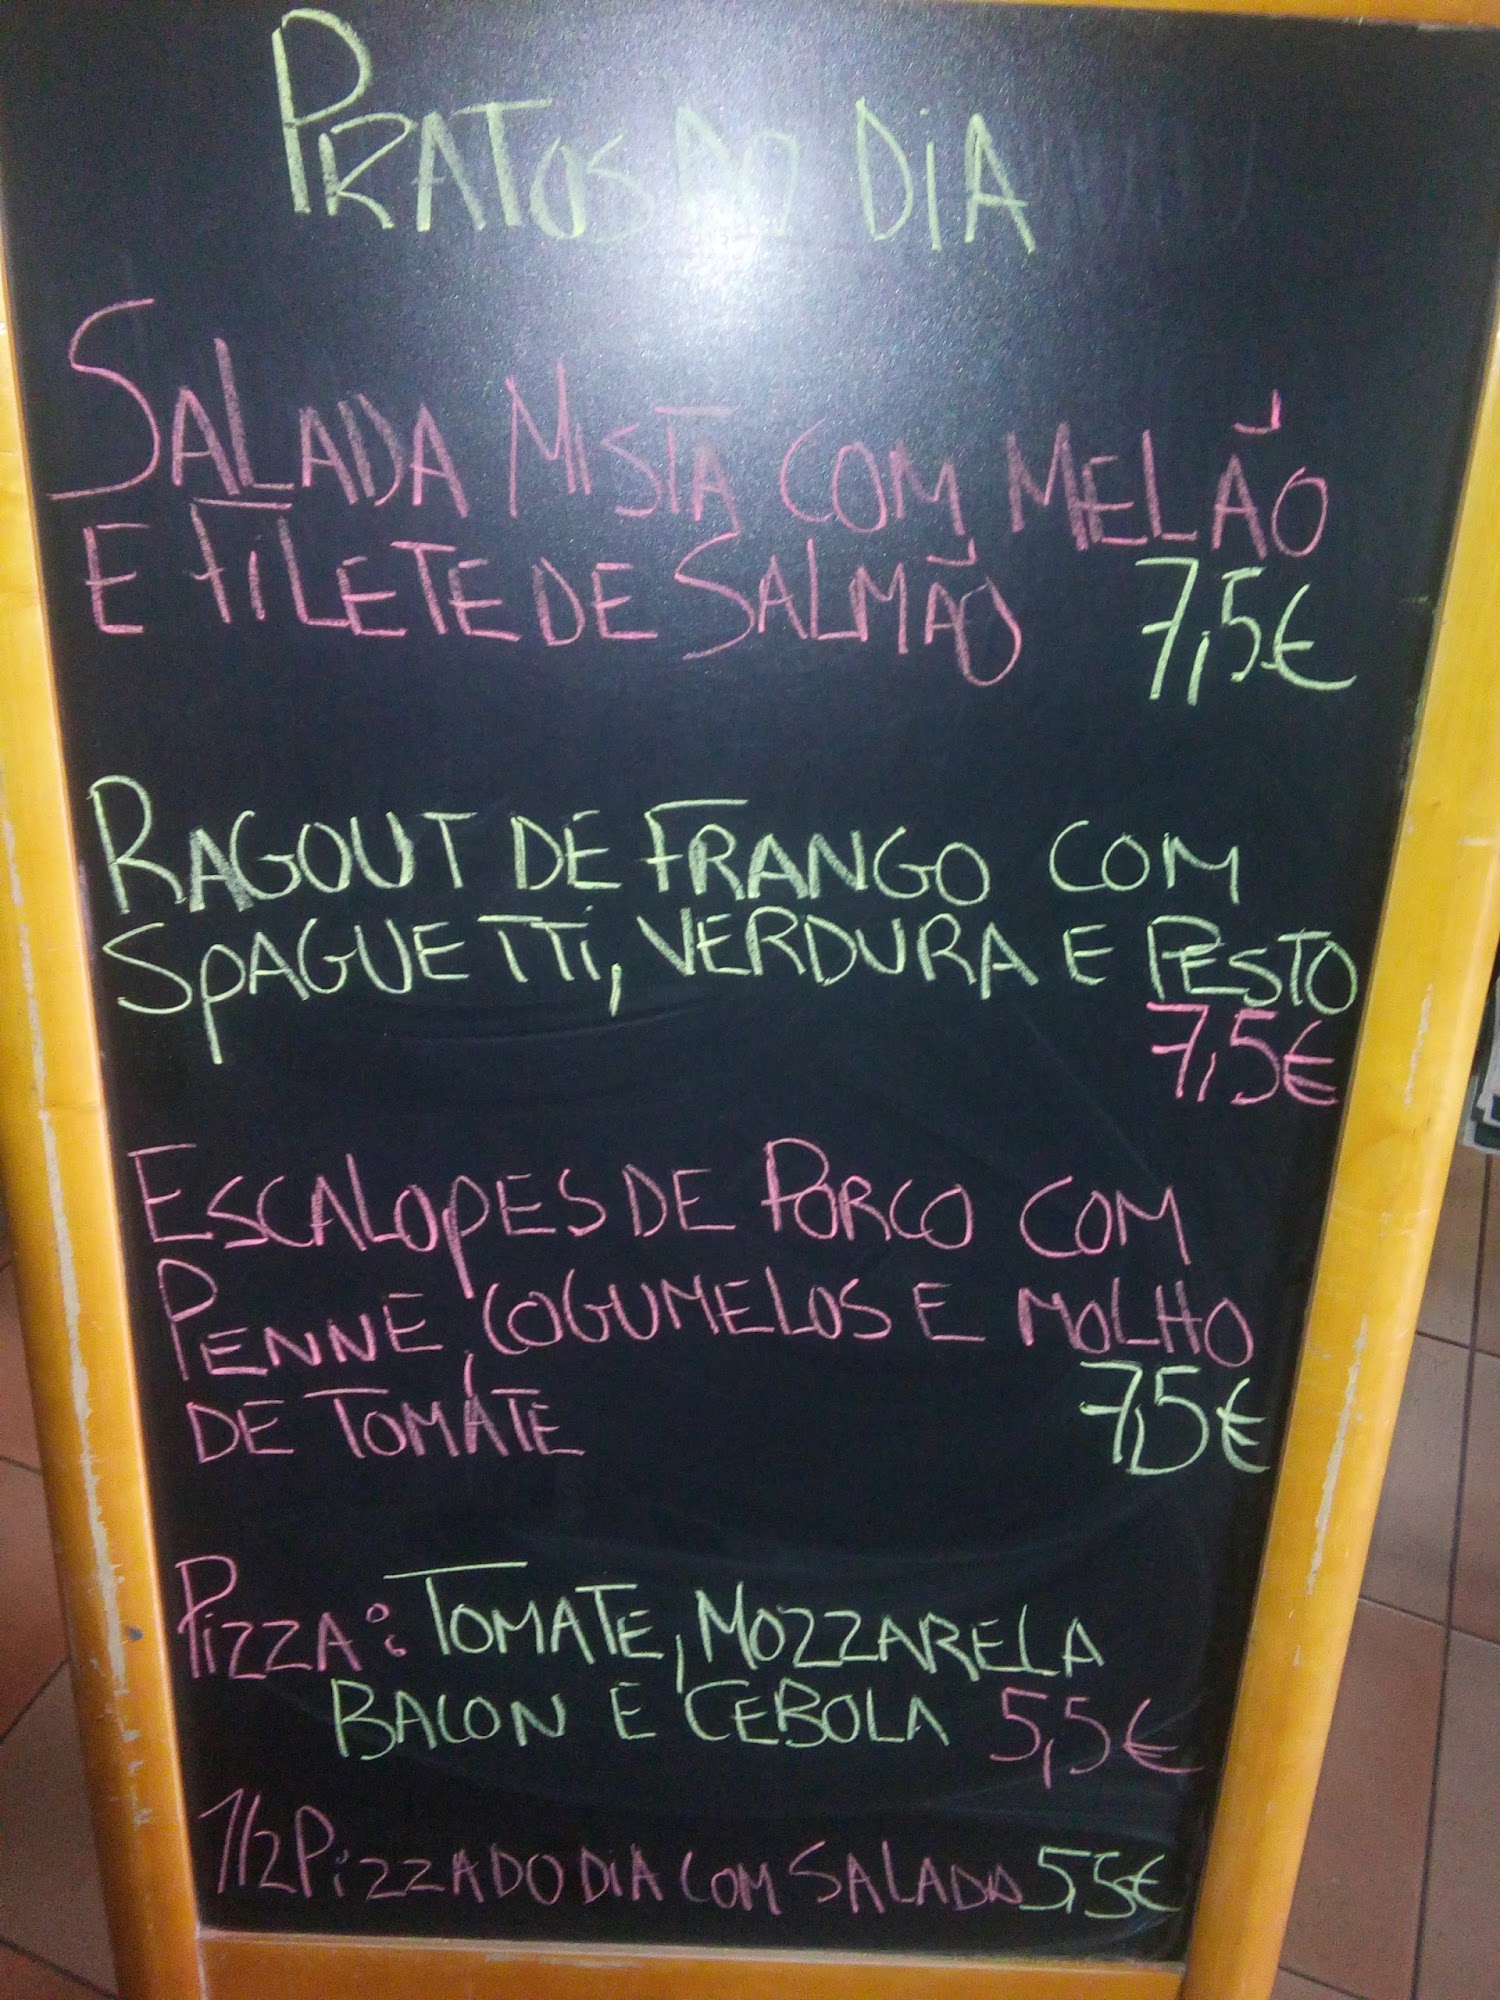 PRATOS DO DIA
SALADA MISTA COM MELÃO
E FILETE DE SALMÃO 7,5€
RAGOUT DE FRANGO COM
SPAGUETTI, VERDURA E PESTO
7,5€
ESCALOPES DE PORCO COM
PENNE, COGUMELOS E MOLHO
DE TOMATE 7,5€
PIZZA: TOMATE, MOZZARELA
BACON E CEBOLA 5,5€
1/2 PIZZA DO DIA COM SALADA 5,5€